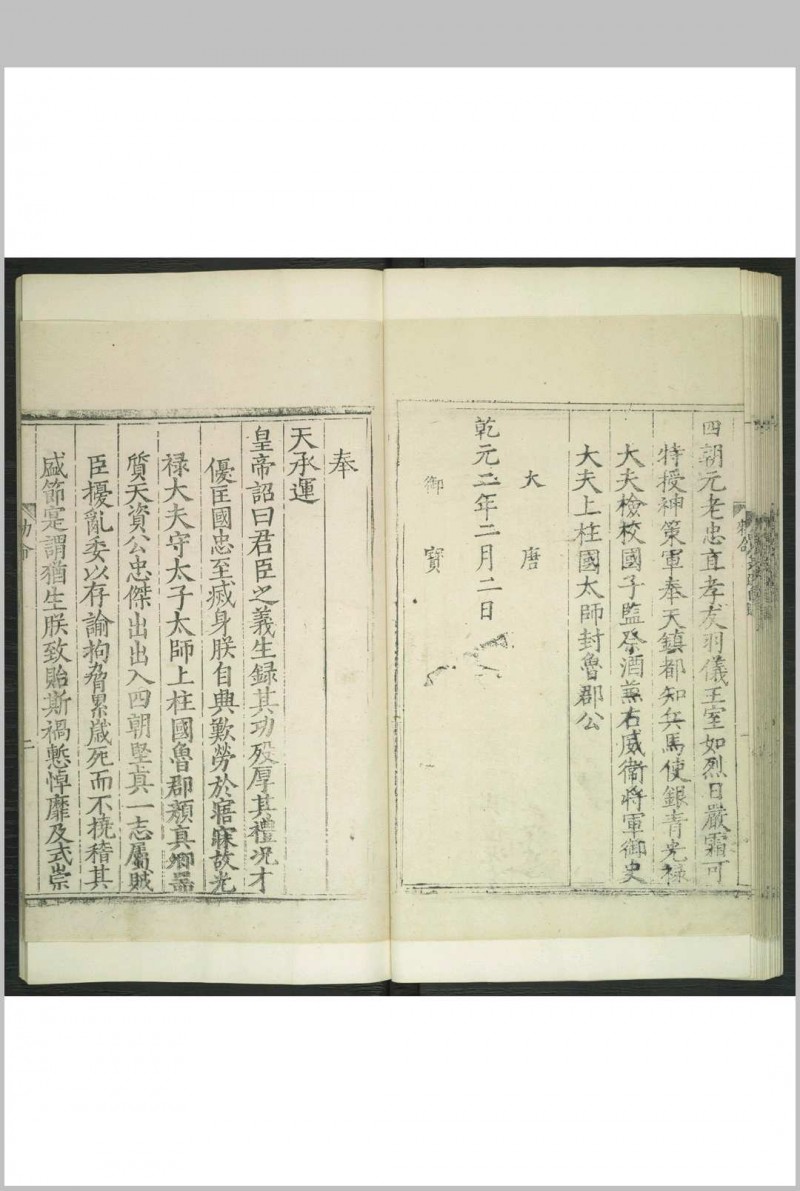 四朝元老忠直孝友羽儀王室如烈日嚴霜可
特授神策軍奉天鎮都知兵馬使銀青光祿
大夫檢校國子監祭酒兼右威衛將軍御史
大夫上柱國太師封魯郡公
大唐
乾元二年二月二日
御寶
奉
天承運
皇帝詔曰君臣之義生録其功殁厚其禮况才
優匡國忠至滅身朕自典歎勞於寤寐故光
禄大夫守太子太師上柱國魯郡顔真卿器
質天資公忠傑出出入四朝堅真一志屬賊
臣擾亂委以存諭拘脅累歲死而不撓稽其
盛節寔謂猶生朕致貽斯禍慙悼靡及式崇
二